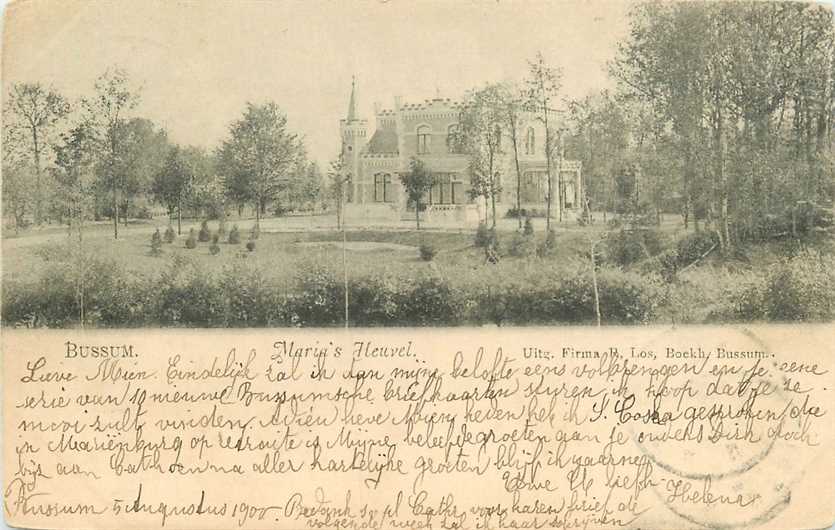 BUSSUM.
Maria's Heuvel.
Uitg. Firma P. Los, Boekh. Bussum.
Lieve Mien. Eindelijk zal ik aan mijne belofte eens volbrengen en je eene
serie van 10 nieuwe Bussumsche briefkaarten sturen ik hoop dat je ze
mooi zult vinden. Adieu lieve Mien heden heb ik S. Coska gesproken, die
in Mariënburg op retraite is Mijne beleefde groeten aan je
bij aan Cath en na aller hartelijke groeten blijf ik gaarne
Uwe U liefh. Helena
Bussum 5 Augustus 1900. Bedank s.pl Cath. voor haren brief de
volgende week zal ik haar schrijven